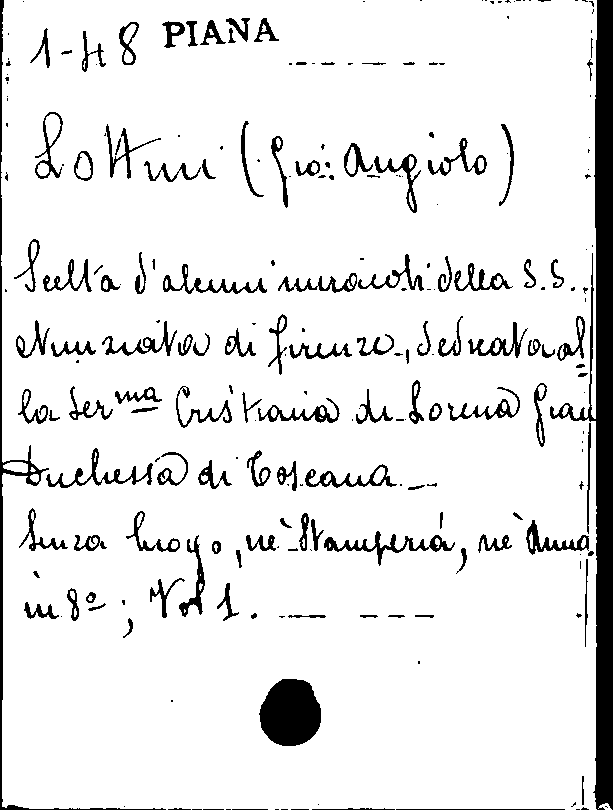 1-48 PIANA
Lottini (Gio: Angiolo)
Scelta d'alcuni miracoli della S.S.
Nunziata di Firenze, dedicata al
la Ser ma Cristiana di Lorena Gran
Duchessa di Toscana
Senza luogo, nè Stamperia, nè Anno
in 8º; Vol 1.